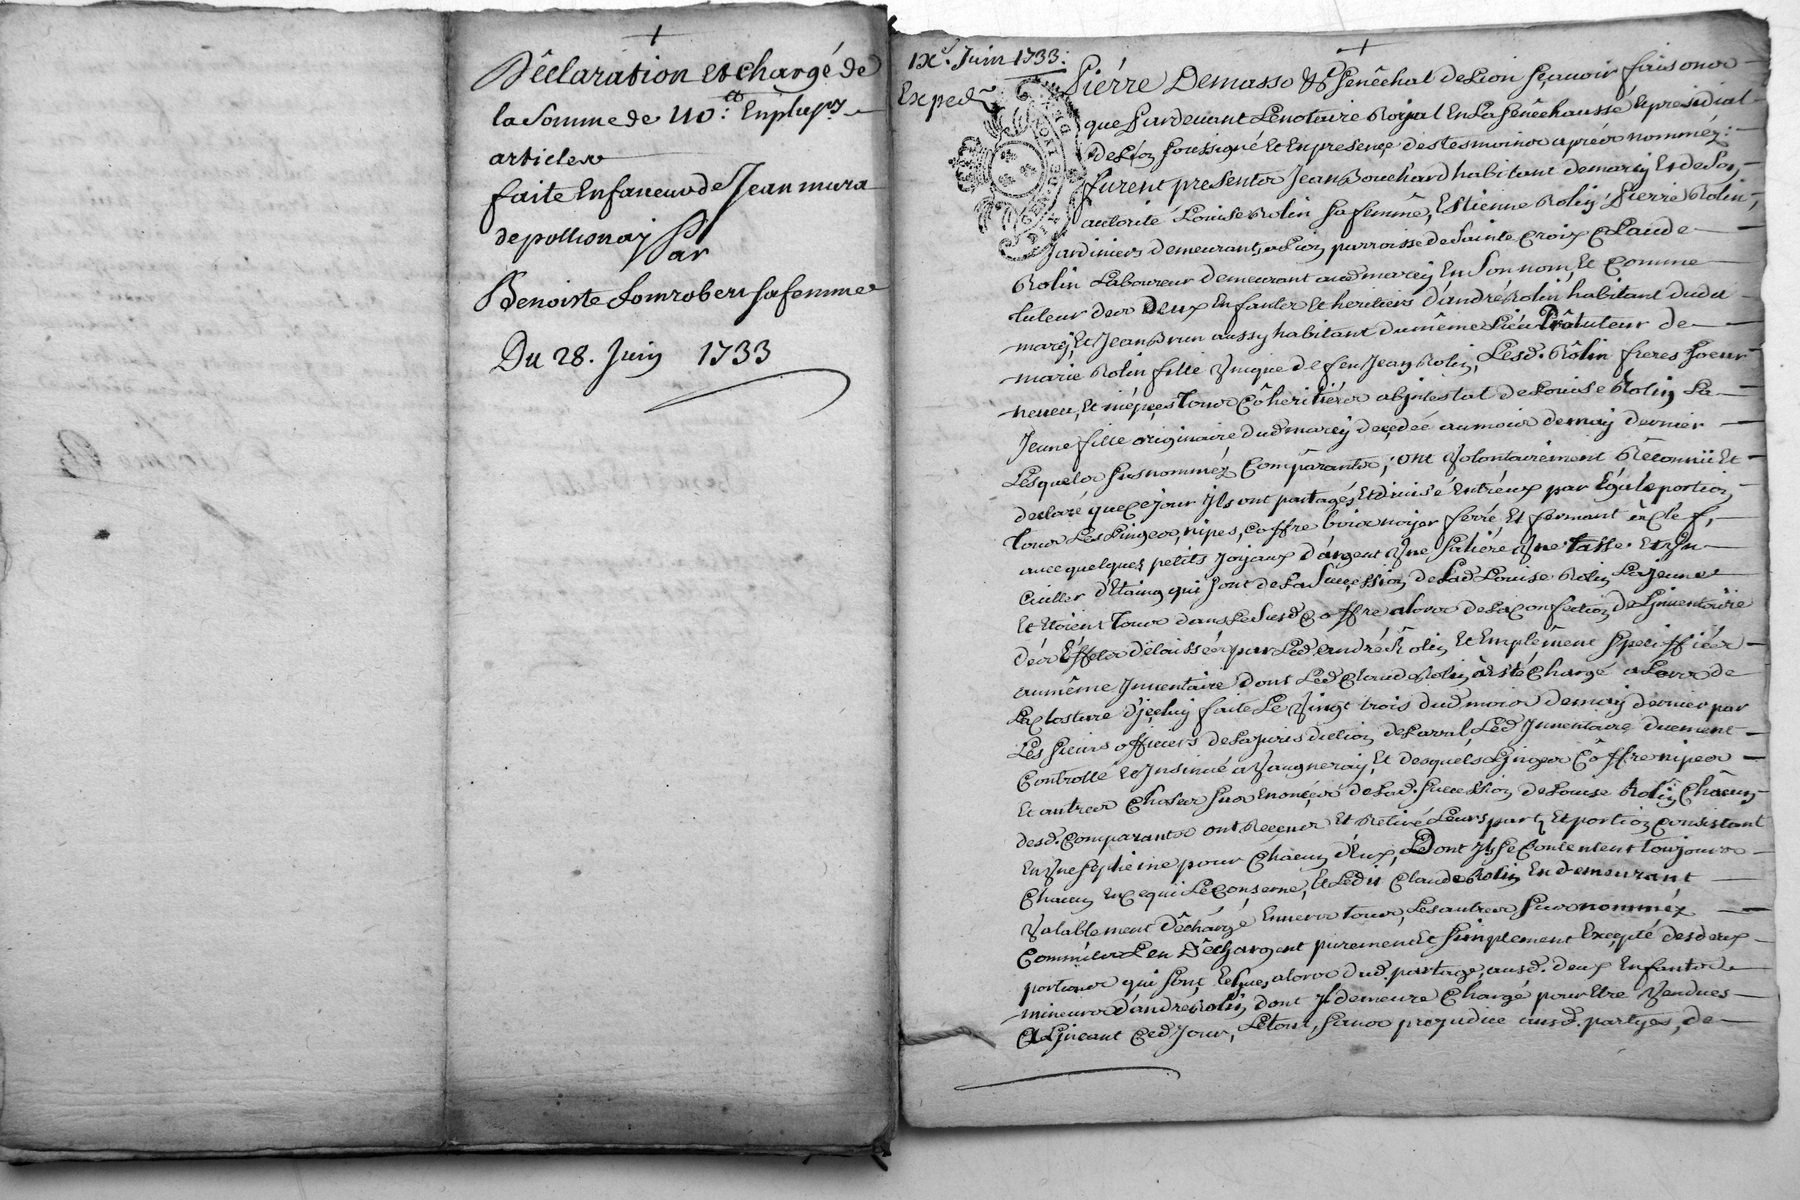 Déclaration et chargé de
la Somme de 110:
articles
faite En faveur de Jean mura
de pollionay Par
Benoiste Lomrobert sa femme
Du 28. Juin 1733
IXe. Juin 1733:
Exped
Pierre Demasso Sénéchal de Lion Sçavoir faisons
que Pardevant Le notaire Royal En La Sénéchaussé et presidial
de Lion soussigné Et En presence des tesmoins aprés nommés:
furent presents Jean Bouchard habitant de marcy Et de Son
autorité Louise Rolin sa femme, Estienne Rolin, Pierre Rolin,
Jardiniers demeurants a Lion parroisse de Sainte Croix Claude
Rolin Laboureur demeurant aud marcy En Son nom, Et Comme
tuteur des Deux Enfants Et heritiers d'andré Rolin habitant dudit
marcy, Et Jean Brun aussy habitant du même Lieu Protuteur de
marie Rolin fille Unique de feu Jean Rolin, Lesd. Rôlin freres Soeur
neveu, Et niépces Tous Cohéritiérs abintestat de Louise Rolin La
Jeune fille originaire dud marcy decédée au mois de may dernier
Lesquels susnommés Compârants, ont Volontairement Réconnü Et
declaré que Ce jour Ils ont partagés Et divisé Entréux par Egale portion
Tous Les Linges, nipes, Coffre bois noyer ferré, Et fermant à Clef,
avec quelques petits Joyaux d'argent Une Saliére Une Tasse Et Un
Cuiller d'Etaing qui sont de La Succession de Lad Louise Rolin La Jeune
Et Etoient Tous dans Le Susd Coffre alors de La Confection de L'inventaire
dés Efféts délaissés par Led andré Rolin Et Emplément specifficér
au même Inventaire dont Led Claude Rolin a Esté Chargé alors de
La Closture d'jceluy faite Le Vingt trois dud mois de may dernier par
Les sieurs officiers de La jurisdiction de Laval, Led Inventaire duement
Controllé Et Insinué a Vaugneray, Et desquels Linges Côffre nipes
Et autres Choses sus Enoncées de Lad. Succession de Louise Rolin Châcun
desd. Comparants ont Recenus Et Retiré Leurs part Et portion Consistant
En Une septiéme pour Chacun d'Eux, Dont Ils se Contentent Toujours
Chacun En Ce qui Le Conserne, Et Ledit Claude Rolin En demeurant
Valablement Déchargé Envers tous, Les autres Susnommés
Comm'ils L'en Déchargent purement Et Simplement Excépté des deux
portions qui sont Echues alors dud. partage, ausd. deux Enfants
mineurs d'andré Rolin, dont Il demeure Chargé pour Etre Vendues
A L'jncant Ced Jour, Le tout, sans prejudice ausd. partyes, de